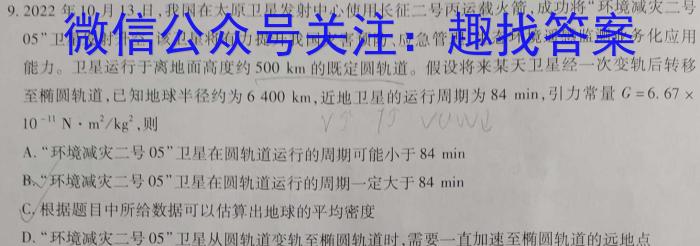 9. 2022 年 10 月 13 日，我国在太原卫星发射中心使用长征二号丙运载火箭，成功将“环境减灾二号
05”卫星
微信公众号关注：趣找答案
务化应用
能力。卫星运行于离地面高度约 500 km 的既定圆轨道。假设将来某天卫星经一次变轨后转移
至椭圆轨道，已知地球半径约为 6 400 km，近地卫星的运行周期为 84 min，引力常量 G＝6.67 ×
10⁻¹¹ N·m²/kg²，则
A. “环境减灾二号 05”卫星在圆轨道运行的周期可能小于 84 min
B. “环境减灾二号 05”卫星在圆轨道运行的周期一定大于 84 min
C. 根据题目中所给数据可以估算出地球的平均密度
D. “环境减灾二号 05”卫星从圆轨道变轨至椭圆轨道时，需要一直加速至椭圆轨道的远地点